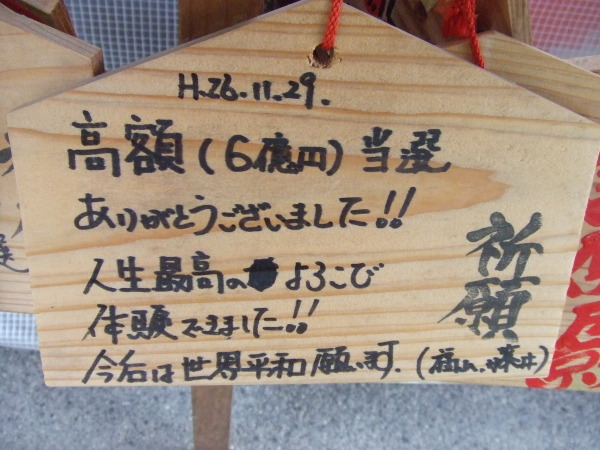 H.26.11.29.
高額(6億円)当選
ありがとうございました!!
人生最高の よろこび
体験できました!!
今后は世界平和願います。(福山.
祈願